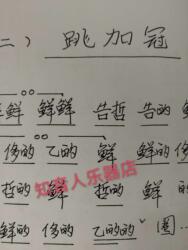 二）跳加冠
鲜 鲜鲜 告哲 告的
侈的 乙的 鲜 鲜的
哲的 鲜 哲的 鲜 的
鲜的 侈的 乙的的
知音人乐器店